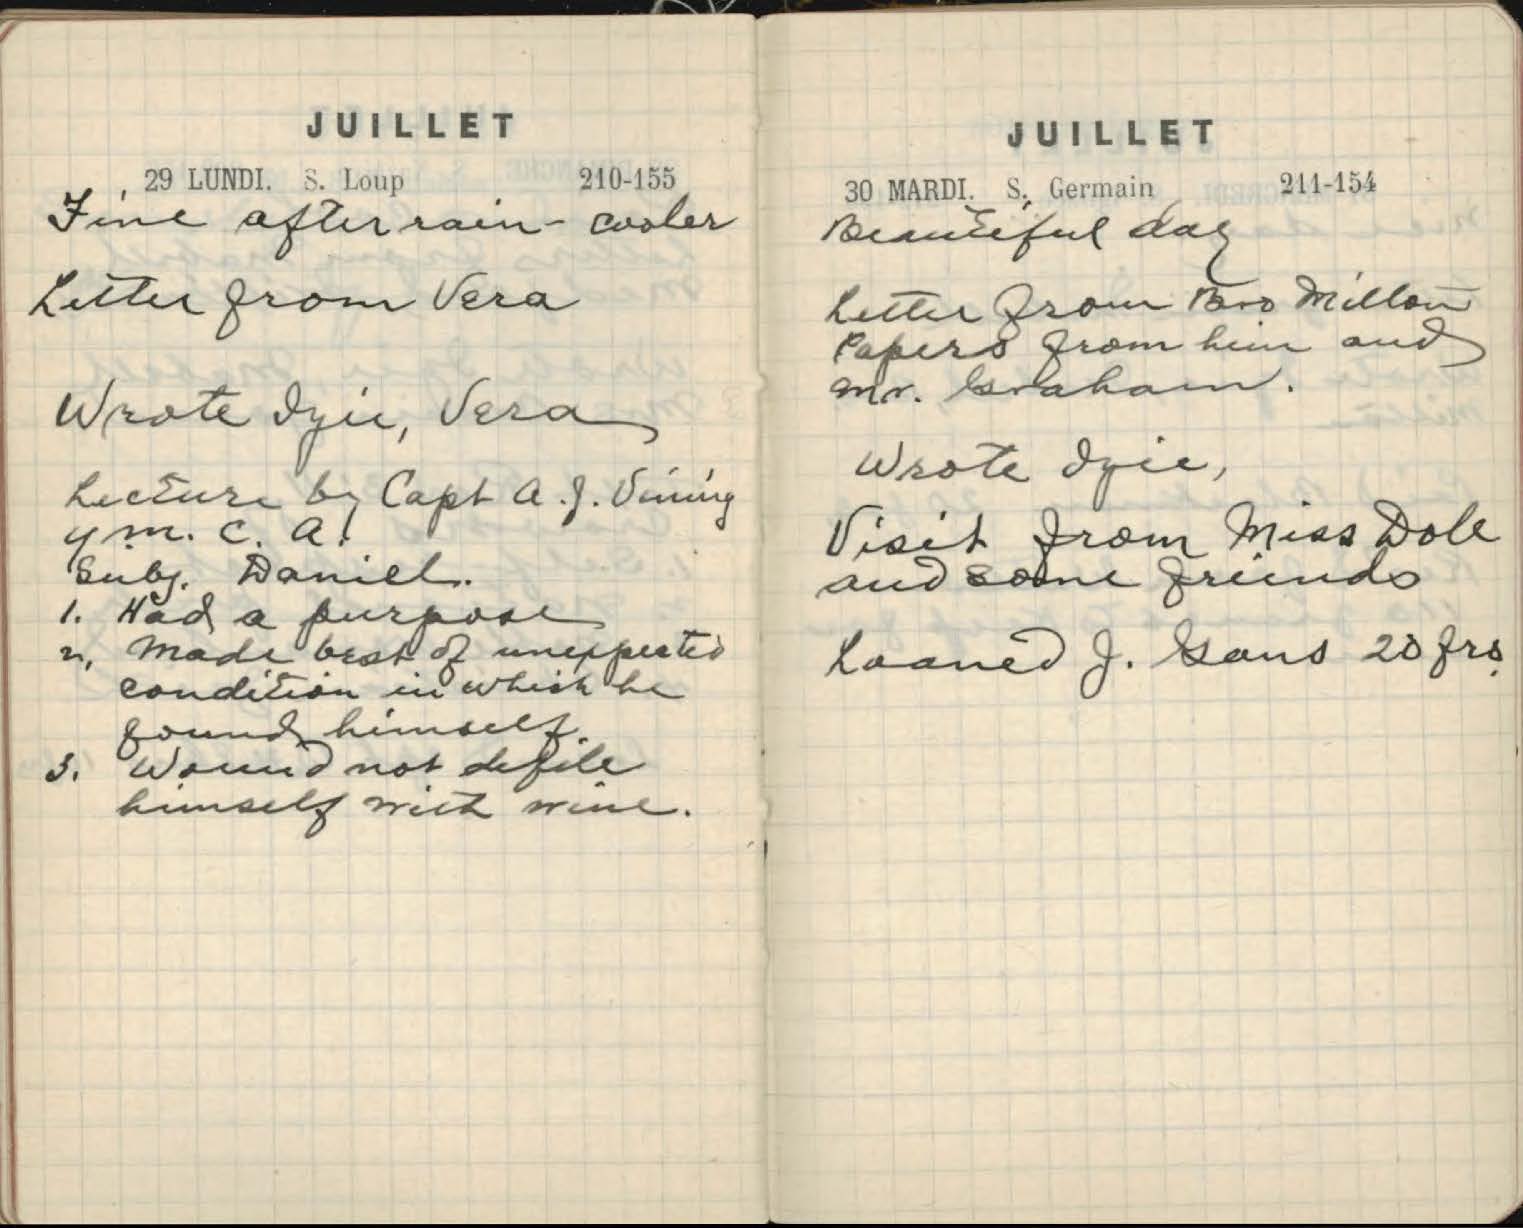 JUILLET
29 LUNDI. S. Loup 210-155
Fine after rain - cooler
Letter from Vera
Wrote Izie, Vera
Lecture by Capt A. J. Vining
Y M. C. A.
Subj. Daniel.
1. Had a purpose
2, Made best of unexpected
condition in which he
found himself.
3. Wound not defile
himself with wine.
JUILLET
30 MARDI. S. Germain 211-154
Beautiful day
Letter from Bro Milton
Papers from him and
Mr. Graham.
Wrote Izie,
Visit from Miss Dole
and some friends
Loaned J. Gans 20 frs.